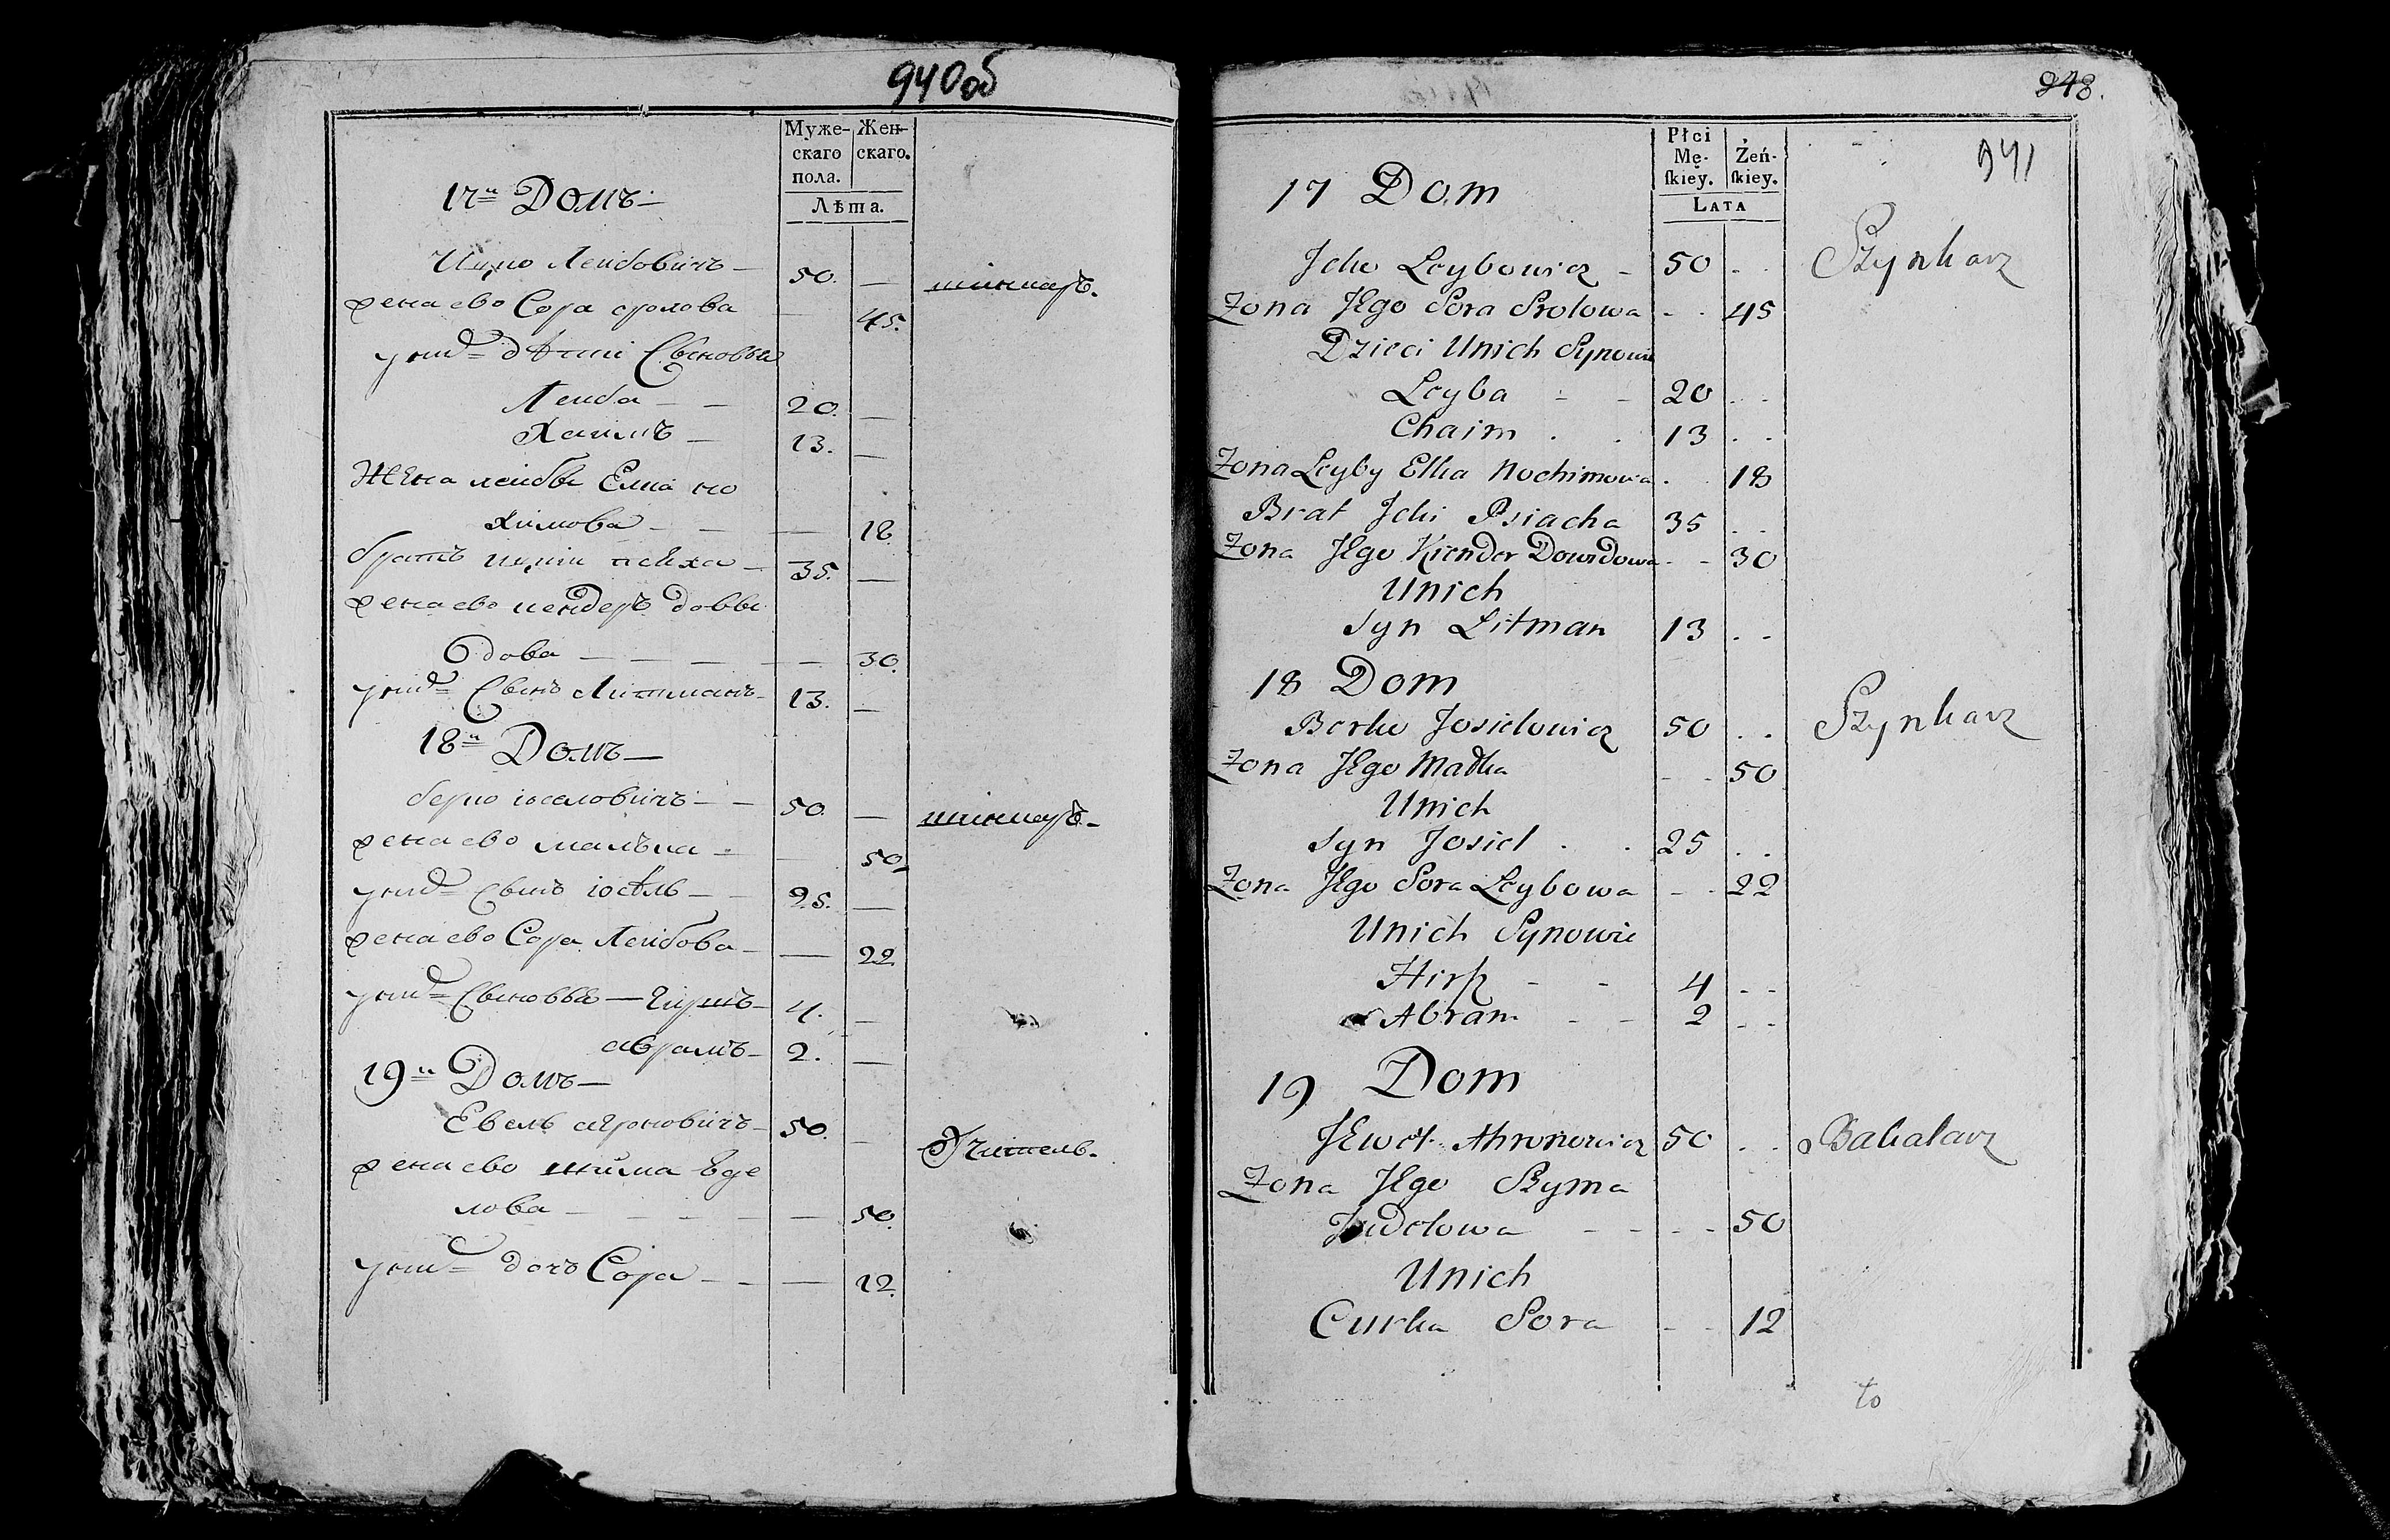 940об
Муже- Жен-
скаго скаго.
пола.
Лѣта.
17й Домъ
Ицко Лейбовичъ 50. — шинкаръ.
жена ево Сора сролова — 45.
у нихъ дѣти Сыновья
Лейба — 20. —
Хаимъ — 13. —
Жена лейбы Елка но
химова — — 18
братъ ицки псяха — 35. —
жена ево кендеръ довы
дова — — 30.
у нихъ Сынъ Литманъ 13. —
18й Домъ
берко иоселовичъ — 50. — шинкаръ.
жена ево малька — — 50
у нихъ Сынъ іосѣль — 25. —
жена ево Сора Лейбова — — 22
у нихъ Сыновья — Гиршъ 4. —
абрамъ 2. —
19й Домъ
Евель аһроновичъ 50. — Учитель.
жена ево шійма юде
лова — — 50.
у нихъ дочь Сора — — 12.
948.
941
Płci
Mę- Żeń-
ſkiey. ſkiey.
LATA
17 Dom
Jcko Leybowicz 50 . . Szynkarz
Zona Jego Sora Srolowa - . 45
Dzieci Unich Synowie
Leyba - - 20 . .
Chaim . . 13 . .
Zona Leyby Elka Nochimowa . . 18
Brat Jcki Psiacha 35 . .
Zona Jego Kiender Dowidowa - - 30
Unich
Syn Litman 13 . .
18 Dom
Berko Josielowicz 50 . . Szynkarz
Zona Jego Malka - . 50
Unich
Syn Josiel . . 25 . .
Zona Jego Sora Leybowa - . 22
Unich Synowie
Hirſz - - 4 - -
Abram - - 2 - -
19 Dom
Jewel Ahronowicz 50 . . Bakalarz
Zona Jego Szyma
Judelowa - - - - 50
Unich
Curka Sora - - 12
to